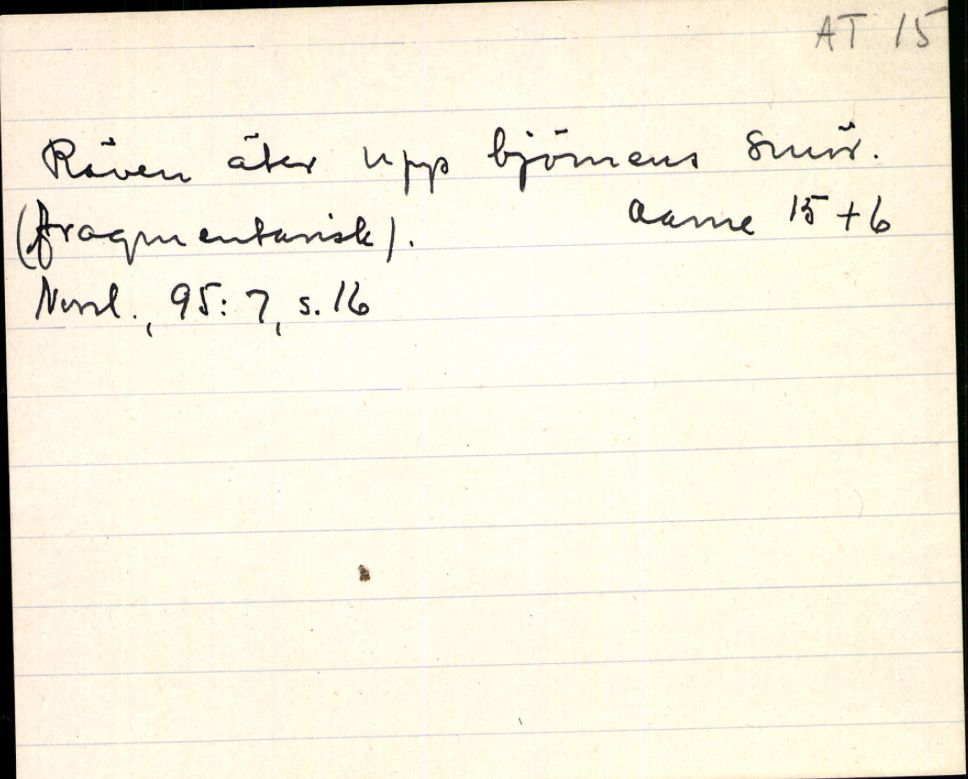 AT 15
Räven äter upp björnens smör.
(fragmentarisk). Aarne 15+6
Norrl., 95: 7, s. 16